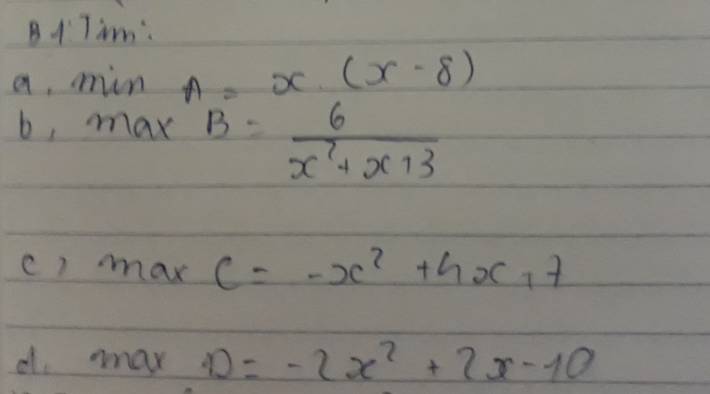 B1: Tìm:
a, min A = x (x - 8)
b, max B = 6 / x² + x + 3
c, max C = -x² + 4x + 7
d. max D = -2x² + 2x - 10